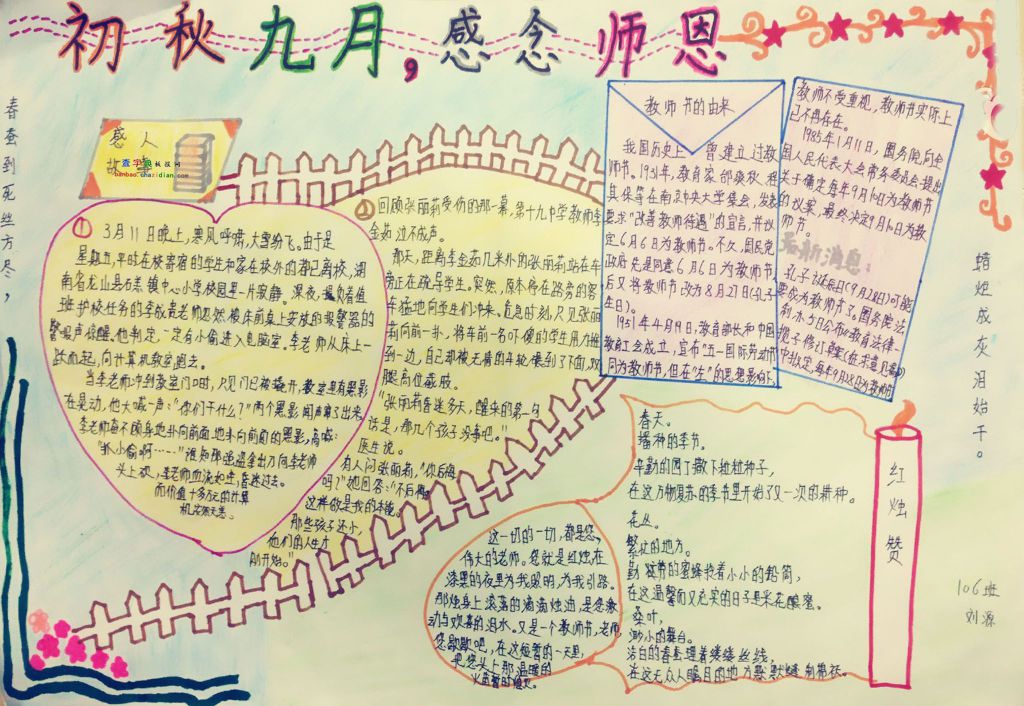 初秋九月,感念师恩
春蚕到死丝方尽,
蜡炬成灰泪始干。
感人
故事
查字典板报网
banbao.chazidian.com
①
3月11日晚上,寒风呼啸,大雪纷飞。由于是
星期五,平时在校寄宿的学生和家在校外的都已离校,湖
南省龙山县石羔镇中心小学校园里一片寂静。深夜,担负着值
班护校任务的李成贵老师忽然被床前桌上安放的报警器的
警报声惊醒。他判定,一定有小偷进入电脑室。李老师从床上一
跃而起,向计算机教室跑去。
当李老师冲到教室门口时,只见门已被撬开,教室里有黑影
在晃动,他大喊一声:“你们干什么?”两个黑影闻声窜了出来,
李老师奋不顾身地扑向前面地扑向前面的黑影,高喊:
“抓小偷啊……”谁知那强盗拿出刀向李老师
头上砍,李老师血流如注,昏迷过去。
而价值十多万元的计算
机安然无恙。
②
回顾张丽莉受伤的那一幕,第十九中学教师李
金茹泣不成声。
那天,距离李金茹几米外的张丽莉站在车
旁正在疏导学生。突然,原本停在路旁的客
车猛地向学生们冲来。危急时刻,只见张丽
莉向前一扑,将车前一名吓傻的学生用力推
到一边,自己却被无情的车轮碾到了下面,双
腿高位截肢。
“张丽莉昏迷多天,醒来的第一句
话是,那几个孩子没事吧。”
医生说。
有人问张丽莉,“你后悔
吗?”她回答:“不后悔,
这样做是我的本能。
那些孩子还小,
他们的人生才
刚开始。”
教师节的由来
我国历史上,曾建立过教
师节。1931年,教育家邰爽秋、程
其保等在南京中央大学集会,发表
要求“改善教师待遇”的宣言,并议
定6月6日为教师节。不久,国民党
政府先是同意6月6日为教师节,
后又将教师节改为8月27日(孔子
生日)。
1951年4月19日,教育部长和中国
教育工会成立,宣布“五一国际劳动节”
同为教师节,但在“左”的思想影响下,
教师不受重视,教师节实际上
已不再存在。
1985年1月11日,国务院向全
国人民代表大会常务委员会提出
关于确定每年9月10日为教师节
的议案,最终决定9月10日为教
师节。
最新消息:
孔子诞辰日(9月28日)可能
要成为教师节了。国务院法
制办5日公布《教育法律一
揽子修订草案(征求意见稿)》
中拟定,每年9月28日为教师节
春天。
播种的季节。
辛勤的园丁撒下粒粒种子,
在这万物复苏的季节里开始了又一次的耕种。
花丛。
繁忙的地方。
勤劳的蜜蜂挎着小小的铅筒,
在这温馨而又充实的日子是采花酿蜜。
桑叶,
渺小的舞台。
洁白的春蚕理着缕缕丝线,
在这无众人瞩目的地方默默缝制锦袄。
红烛赞
这一切的一切,都是您,
伟大的老师。您就是红烛,在
漆黑的夜里为我照明,为我引路。
那烛身上滚落的滴滴烛油是您激
动与欢喜的泪水。又是一个教师节,老师,
您歇歇吧,在这短暂的一天里,
把您头上那温暖的
106班
刘源